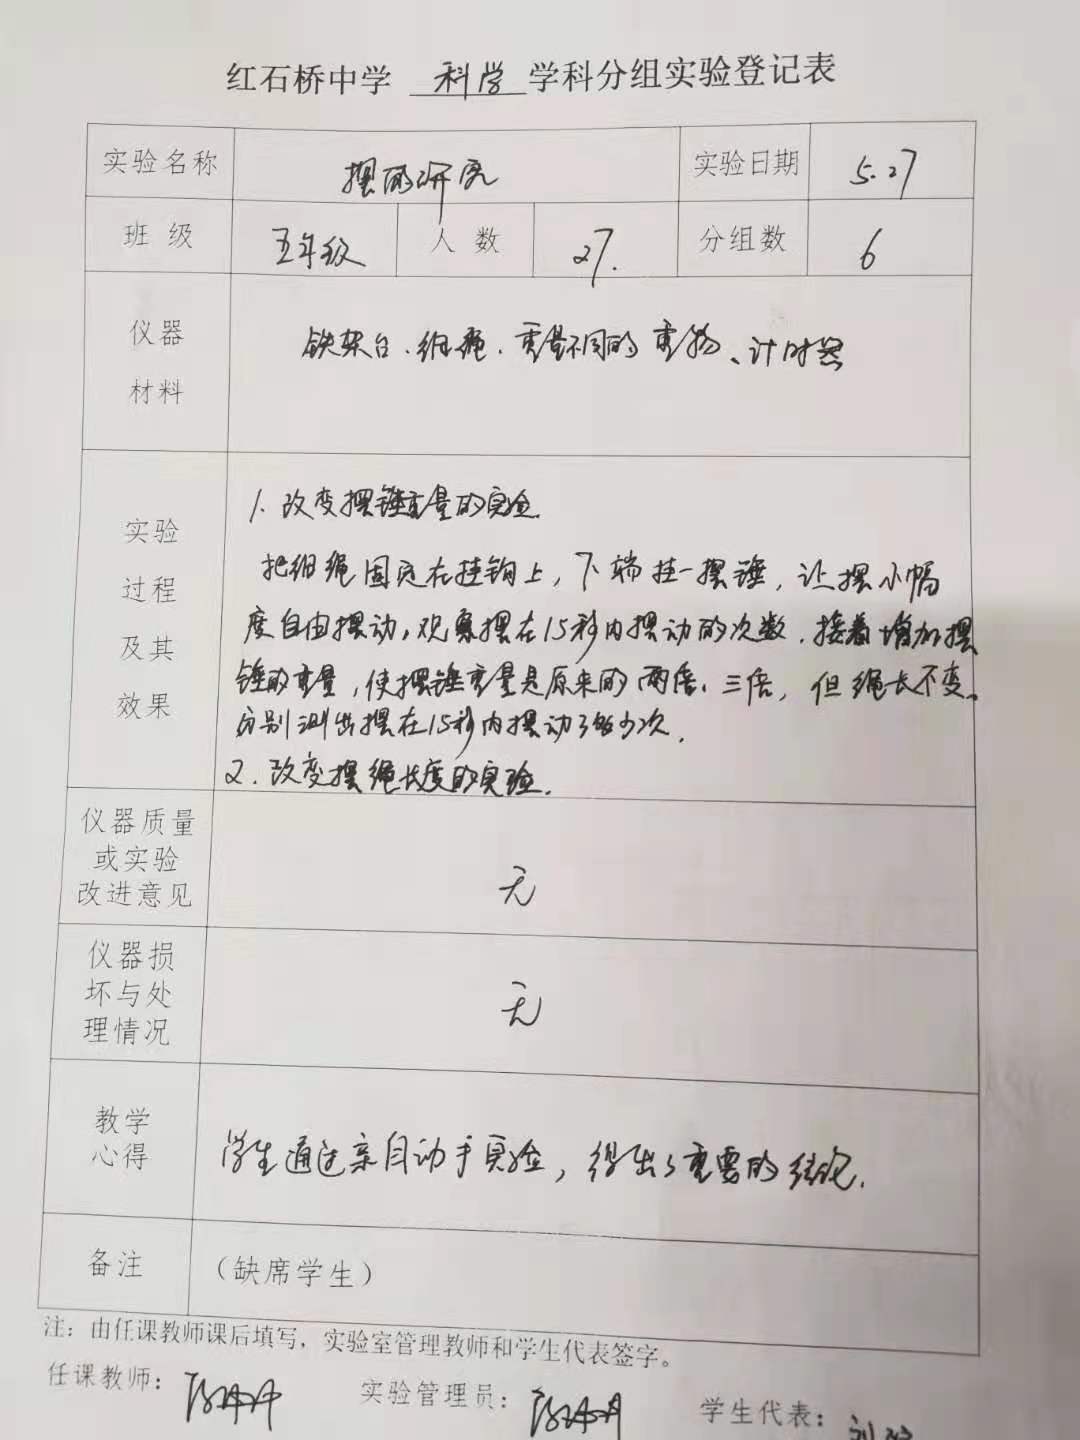 红石桥中学 科学 学科分组实验登记表
实验名称 摆的研究 实验日期 5.27
班级 五年级 人数 27. 分组数 6
仪器
材料
铁架台、细绳、重量不同的重物、计时器
实验
过程
及其
效果
1. 改变摆锤重量的实验.
把细绳固定在挂钩上，下端挂一摆锤，让摆小幅
度自由摆动，观察摆在15秒内摆动的次数.接着增加摆
锤的重量，使摆锤重量是原来的两倍、三倍，但绳长不变、
分别测出摆在15秒内摆动了多少次.
2. 改变摆绳长度的实验.
仪器质量
或实验
改进意见
无
仪器损
坏与处
理情况
无
教学
心得
学生通过亲自动手实验，得出了重要的结论.
备注 （缺席学生）
注：由任课教师课后填写，实验室管理教师和学生代表签字。
任课教师： 实验管理员： 学生代表：